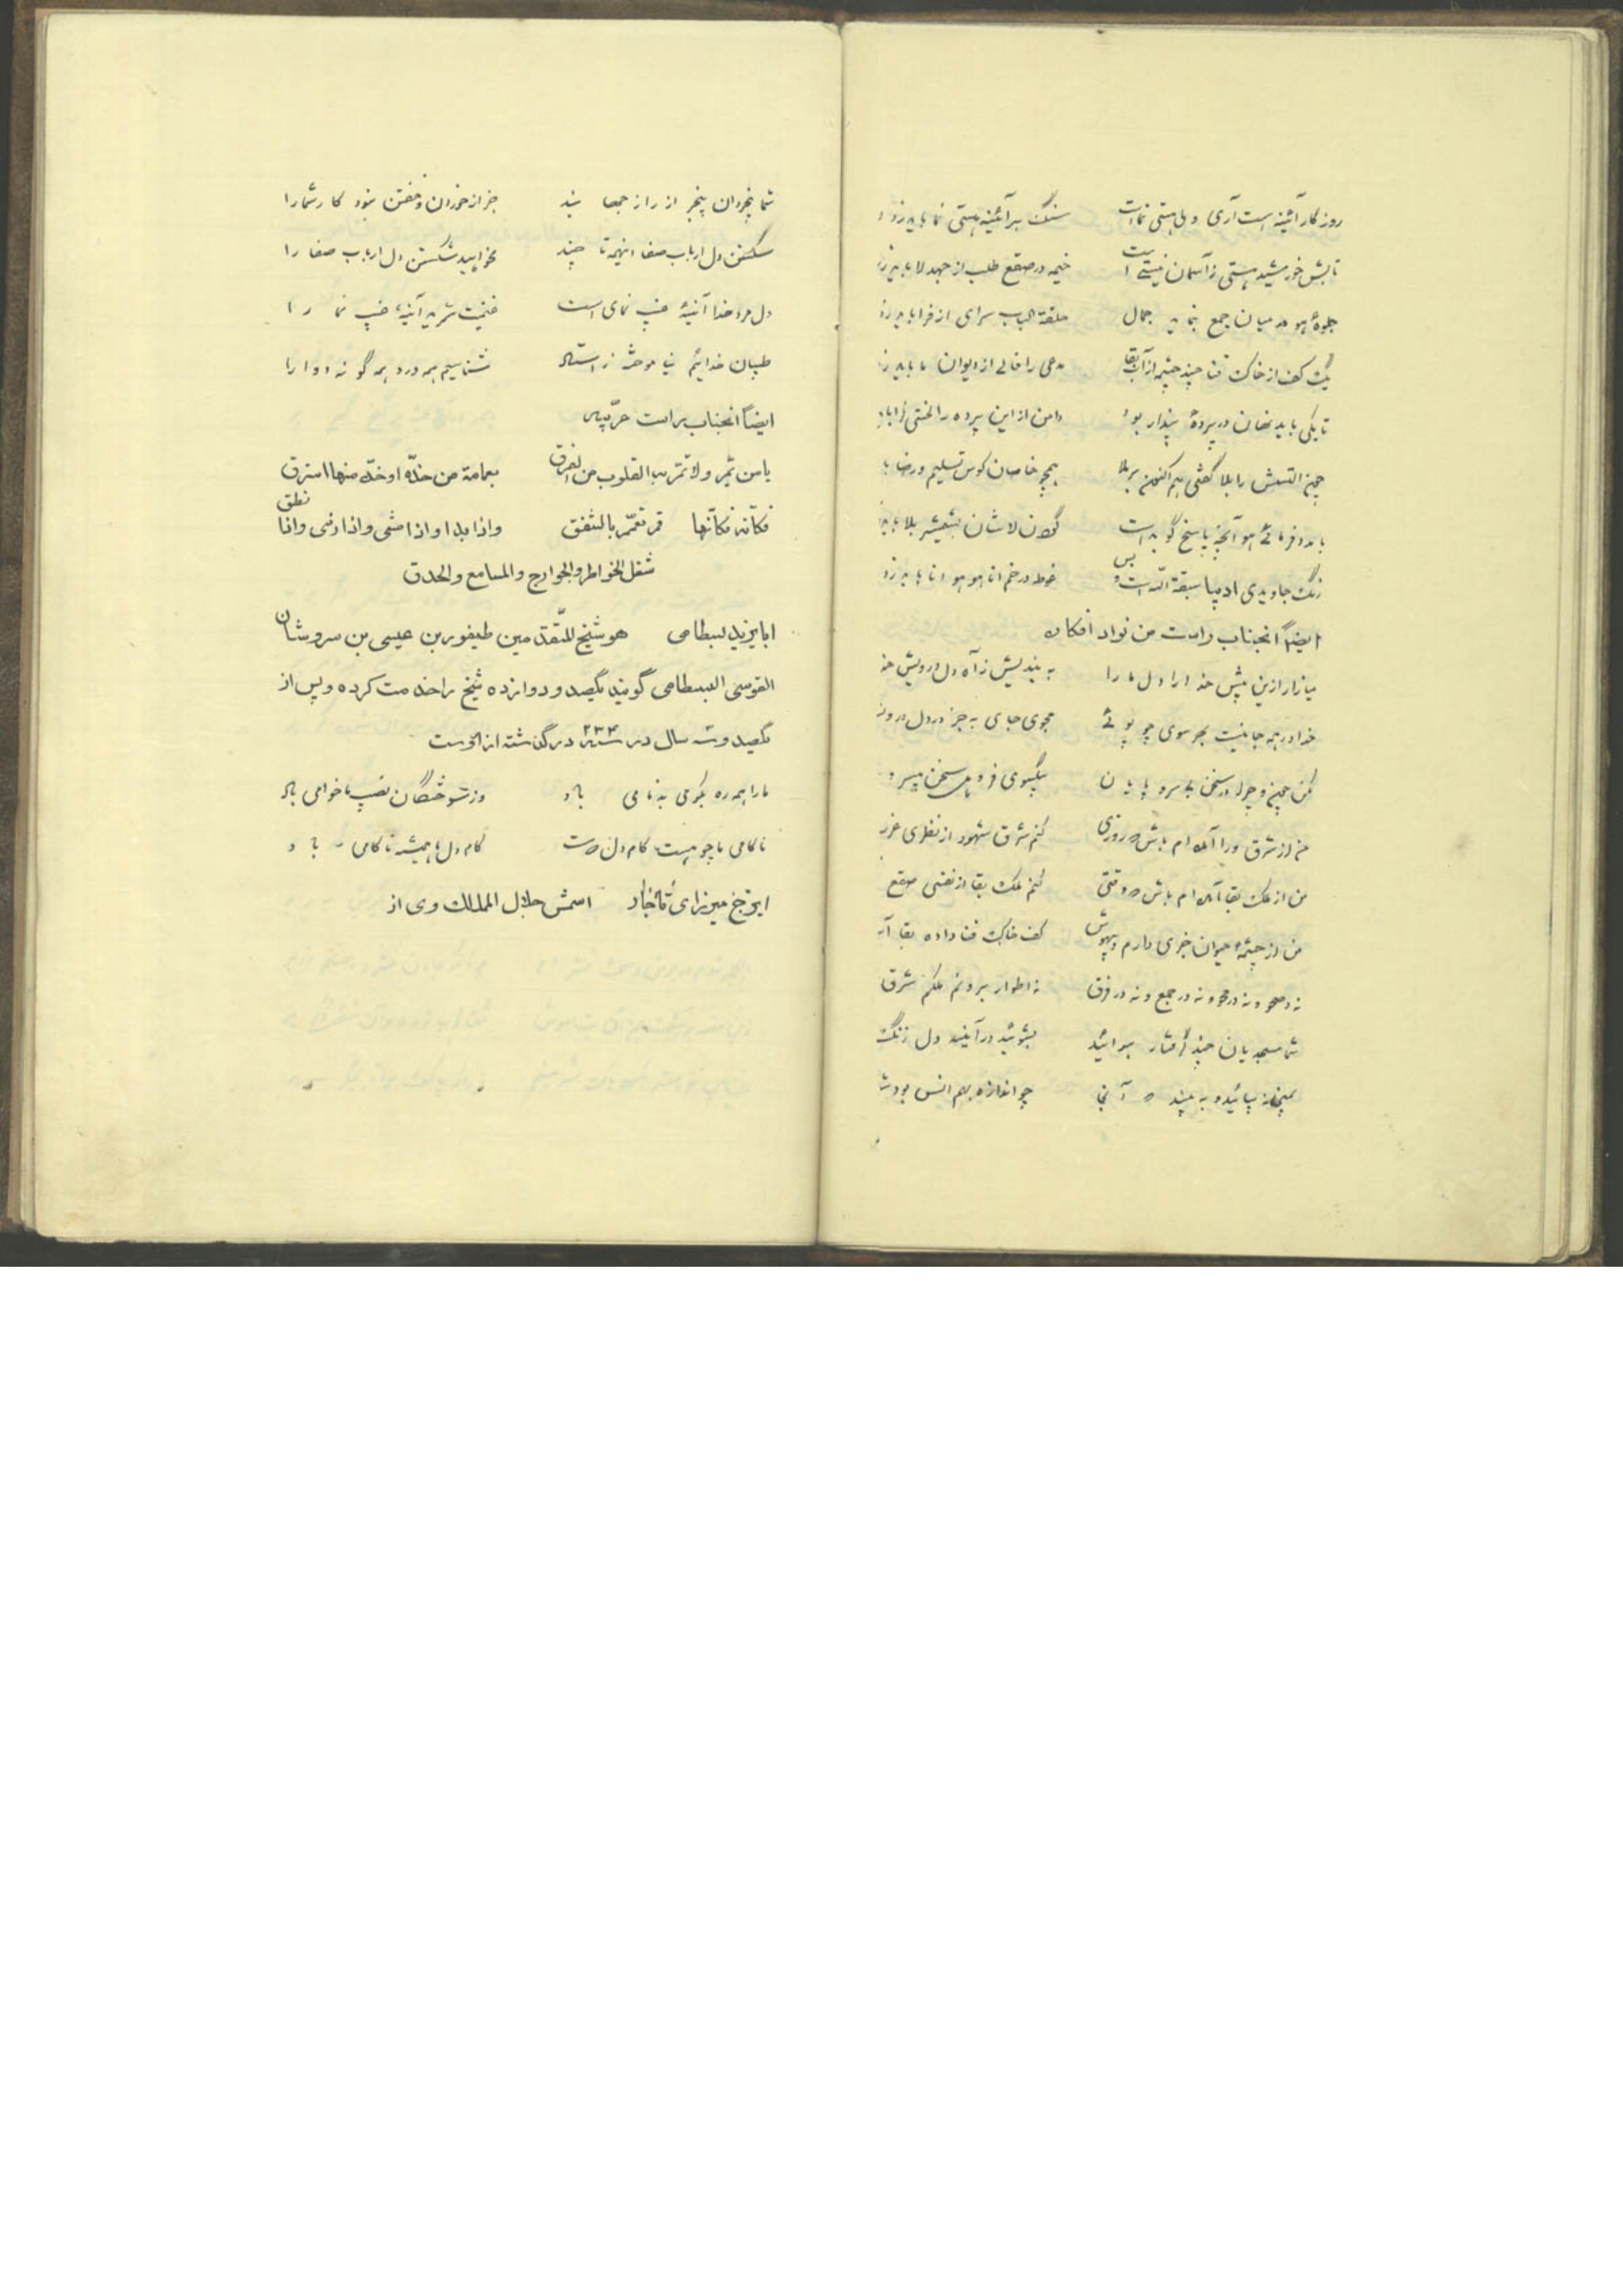 روزگار آئینه است آری ولی هستی نماست سنگ بر آئینه هستی نما باید زد
تابش خورشید هستی ز آسمان نیستی است خیمه در صقع طلب از جهد لا باید زد
جلوهٔ هو در میان جمع بنماید جمال حلقه الباب سرای از فرا باید زد
یک کف از خاک فنا چند چشمه از آب بقا
تا بکی باید نهان در پردهٔ پندار بود دامن از این پرده را لختی فرا باید
چون الستش را بلا گفتی هم اکنون بر بلا همچو خاصان کوس تسلیم و رضا با
رنگ جاویدی ادیبا سبقة الله است و بس غوطه در خم انا هو هو انا باید زد
ایضاً انجناب راست من نواد افکاره
میازار ازین بیش خدا را دل ما را به بندیش ز آه دل درویش خد
خدا در همه جا نیست بهر سوی چو پوئی مجوی جای به جز در دل درو
مکن چون و چرا در سخن بی سر و پایان
من از شرق ورا آمده ام باش که روزی کنم شرق شهود از نظری غر
من از ملک بقا آمده ام باش که وقتی کنم ملک بقا از نفسی صقع
من از چشمهٔ حیوان خبری دارم و بیهوش کف خاک فنا داده بقا آ
نه در صحو و نه در محو و نه در جمع و نه در فرق ز اطوار برونم ملکم شرق
شما مسجدیان چند گرفتار هوائید بشوئید در آیند دل زنگ
بمیخانه بیائید و ببینید که آنجا چو اندازه بهم انس بود
شما بیخردان بیخبر از راز جهانید جز از خوردن و خفتن نبود کار شما را
شکستن دل ارباب صفا اینهمه تا چند نخواهید شکستن دل ارباب صفا را
دل مرد خدا آئینهٔ غیب نمای است غنیمت شمرید آینهٔ غیب نما را
طبیبان خدائیم نیاموخته ز استاد شناسیم همه درد و همه گونه دوا را
ایضاً انجناب راست عربیه
یا من تمر ولا تمر به القلوب من الفرق بعمامة من خده او خده منها استرق
فکأنه فکأنها قمر تعمم بالشفق واذا بدا واذا مشی واذا رنی واذا نطق
شغل الخواطر والجوارح والمسامع والحدق
ابایزید بسطامی هو شیخ المتقدمین طیفور بن عیسی بن سروشان
القوسی البسطامی گویند یکصد و دوازده شیخ را خدمت کرده و پس از
یکصد و سه سال در سنه ۲۳۴ درگذشته از اوست
ما را همه ره بکوی بدنامی باد وز سوختگان نصیب ما خامی باد
ناکامی ما چو هست کام دل دوست کام دل ما همیشه ناکامی باد
ایرج میرزای قاجار اسمش جلال الممالک وی از